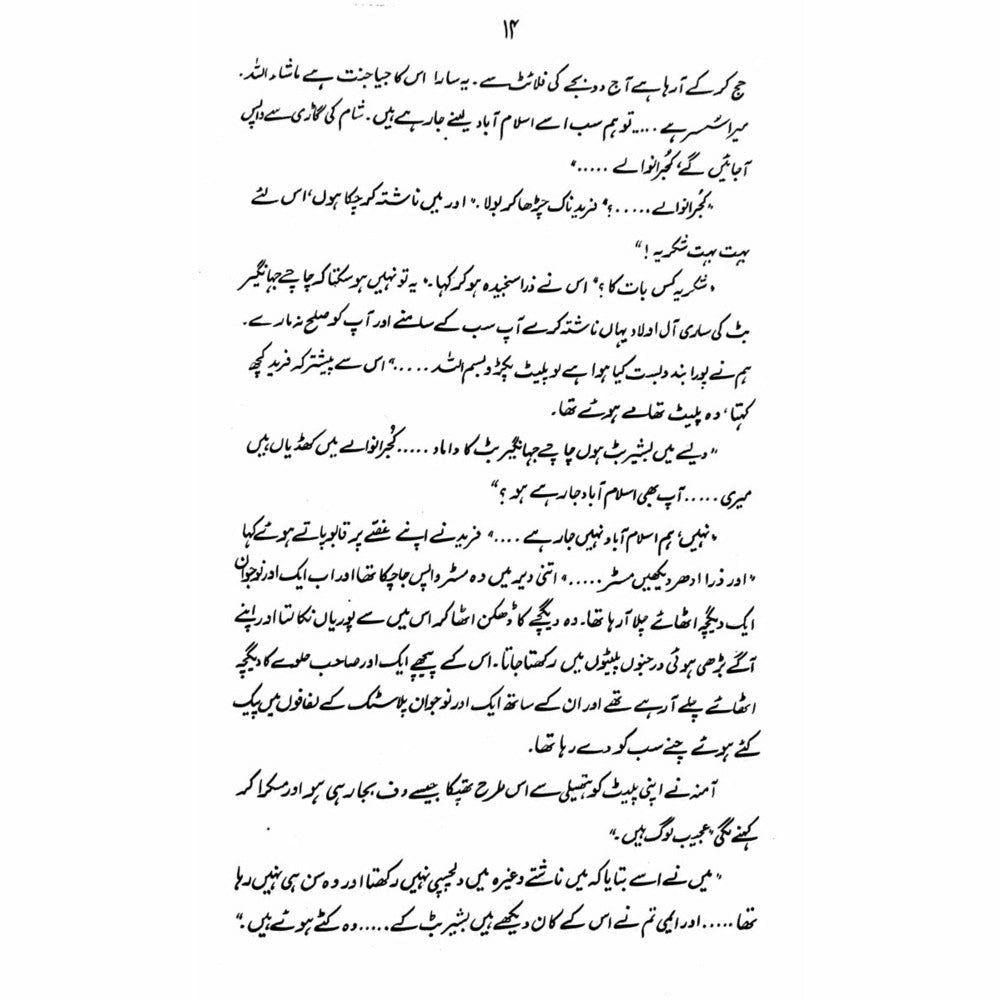 ۱۴
حج کر کے آ رہا ہے آج دو بجے کی فلائٹ سے۔ یہ سارا اس کا جیا جنت ہے ماشاء اللہ۔
میرا سُسر ہے ..... تو ہم سب اسے اسلام آباد لینے جا رہے ہیں۔ شام کی گاڑی سے واپس
آ جائیں گے، گجرانوالے ....."
"گجرانوالے .....؟" فرید ناک چڑھا کر بولا۔ "اور میں ناشتہ کر چکا ہوں، اس لئے
بہت بہت شکریہ!"
"شکریہ کس بات کا؟" اس نے ذرا سنجیدہ ہو کر کہا۔ "یہ تو نہیں ہو سکتا کہ چاچے جہانگیر
بٹ کی ساری آل اولاد یہاں ناشتہ کرے آپ سب کے سامنے اور آپ کو صلح نہ مارے۔
ہم نے پورا بندوبست کیا ہوا ہے لو پلیٹ پکڑو بسم اللہ ....." اس سے پیشتر کہ فرید کچھ
کہتا، وہ پلیٹ تھامے ہوئے تھا۔
"ویسے میں بشیر بٹ ہوں چاچے جہانگیر بٹ کا داماد ..... گجرانوالے میں کھڈیاں ہیں
میری ..... آپ بھی اسلام آباد جا رہے ہو؟"
"نہیں، ہم اسلام آباد نہیں جا رہے ...." فرید نے اپنے غصّے پر قابو پاتے ہوئے کہا
"اور ذرا ادھر دیکھیں مسٹر ....." اتنی دیر میں وہ مسٹر واپس جا چکا تھا اور اب ایک اور نوجوان
ایک دیگچہ اٹھائے چلا آ رہا تھا۔ وہ دیگچے کا ڈھکن اٹھا کر اس میں سے پوریاں نکالتا اور اپنے
آگے بڑھی ہوئی درجنوں پلیٹوں میں رکھتا جاتا۔ اس کے پیچھے ایک اور صاحب حلوے کا دیگچہ
اٹھائے چلے آ رہے تھے اور ان کے ساتھ ایک اور نوجوان پلاسٹک کے لفافوں میں پیک
کئے ہوئے چنے سب کو دے رہا تھا۔
آمنہ نے اپنی پلیٹ کو ہتھیلی سے اس طرح تھپکا جیسے دف بجا رہی ہو اور مسکرا کر
کہنے لگی "عجیب لوگ ہیں۔"
"میں نے اسے بتایا کہ میں ناشتے وغیرہ میں دلچسپی نہیں رکھتا اور وہ سن ہی نہیں رہا
تھا ..... اور ایمی تم نے اس کے کان دیکھے ہیں بشیر بٹ کے ..... وہ کٹے ہوئے ہیں۔"